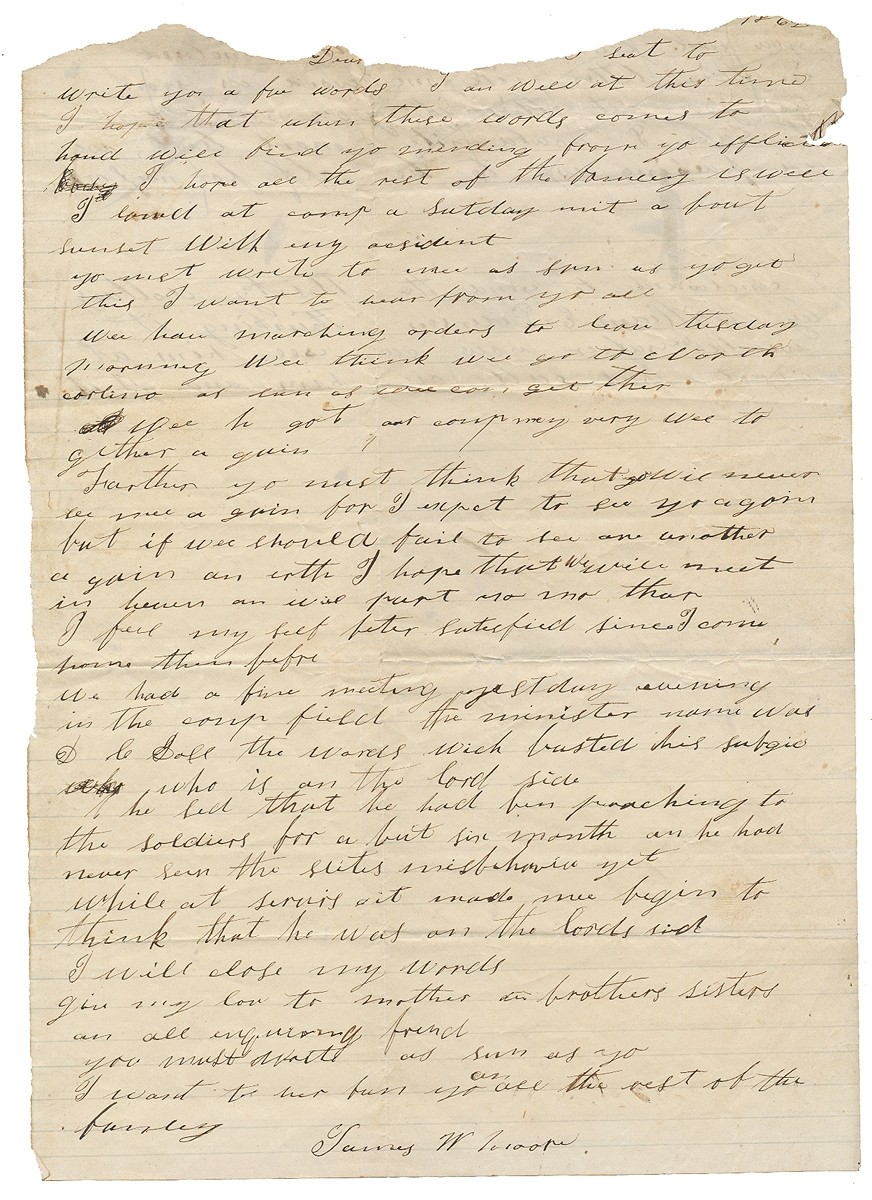 186
Dear I seat to
write you a fue words I am well at this time
I hope that when these words comes to
hand will find yo mending from yo afflic
I hope all the rest of the famley is well
I land at camp a Satday nit a bout
sunset With eny acsident
yo must write to mee as sun as yo get
this I want to hear from yo all
wee have marching orders to leave tuesday
morning Wee think wee go to North
carlino as sun as wee can get ther
Wee h got our compmy very wee to
gether a gain
Farther yo must think that yo wil never
see mee a gain for I expect to see yo again
but if wee should fail to see one another
a gain on erth I hope that We will meet
in heven an wil part no mo thar
I feel my self beter satisfied since I come
home then befre
we had a fine meeting yestday evening
in the camp field the minister name was
D C Doll the words wich busted his subgic
who is on the lord side
he sed that he had ben preaching to
the soldiers for a but six month an he had
never seen the misbehavie yet
While at servis it made mee begin to
think that he was on the lords sid
I will close my words
giv my lov to mother an brothers sisters
an all enquiring frend
you must write as sun as yo
I want to her frun yo an all the rest of the
famley
James W Moore